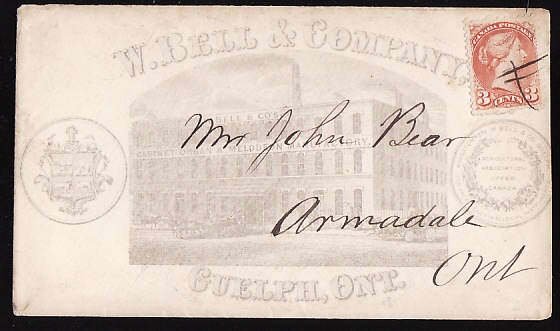 W. BELL & COMPANY,
CANADA POSTAGE
3 CENTS 3
BELL & CO'S
CABINET ORGAN & MELODEON MANUFACTORY
Mr John Bear
AGRICULTURAL
ASSOCIATION
CANADA
Armadale
Ont
GUELPH, ONT.